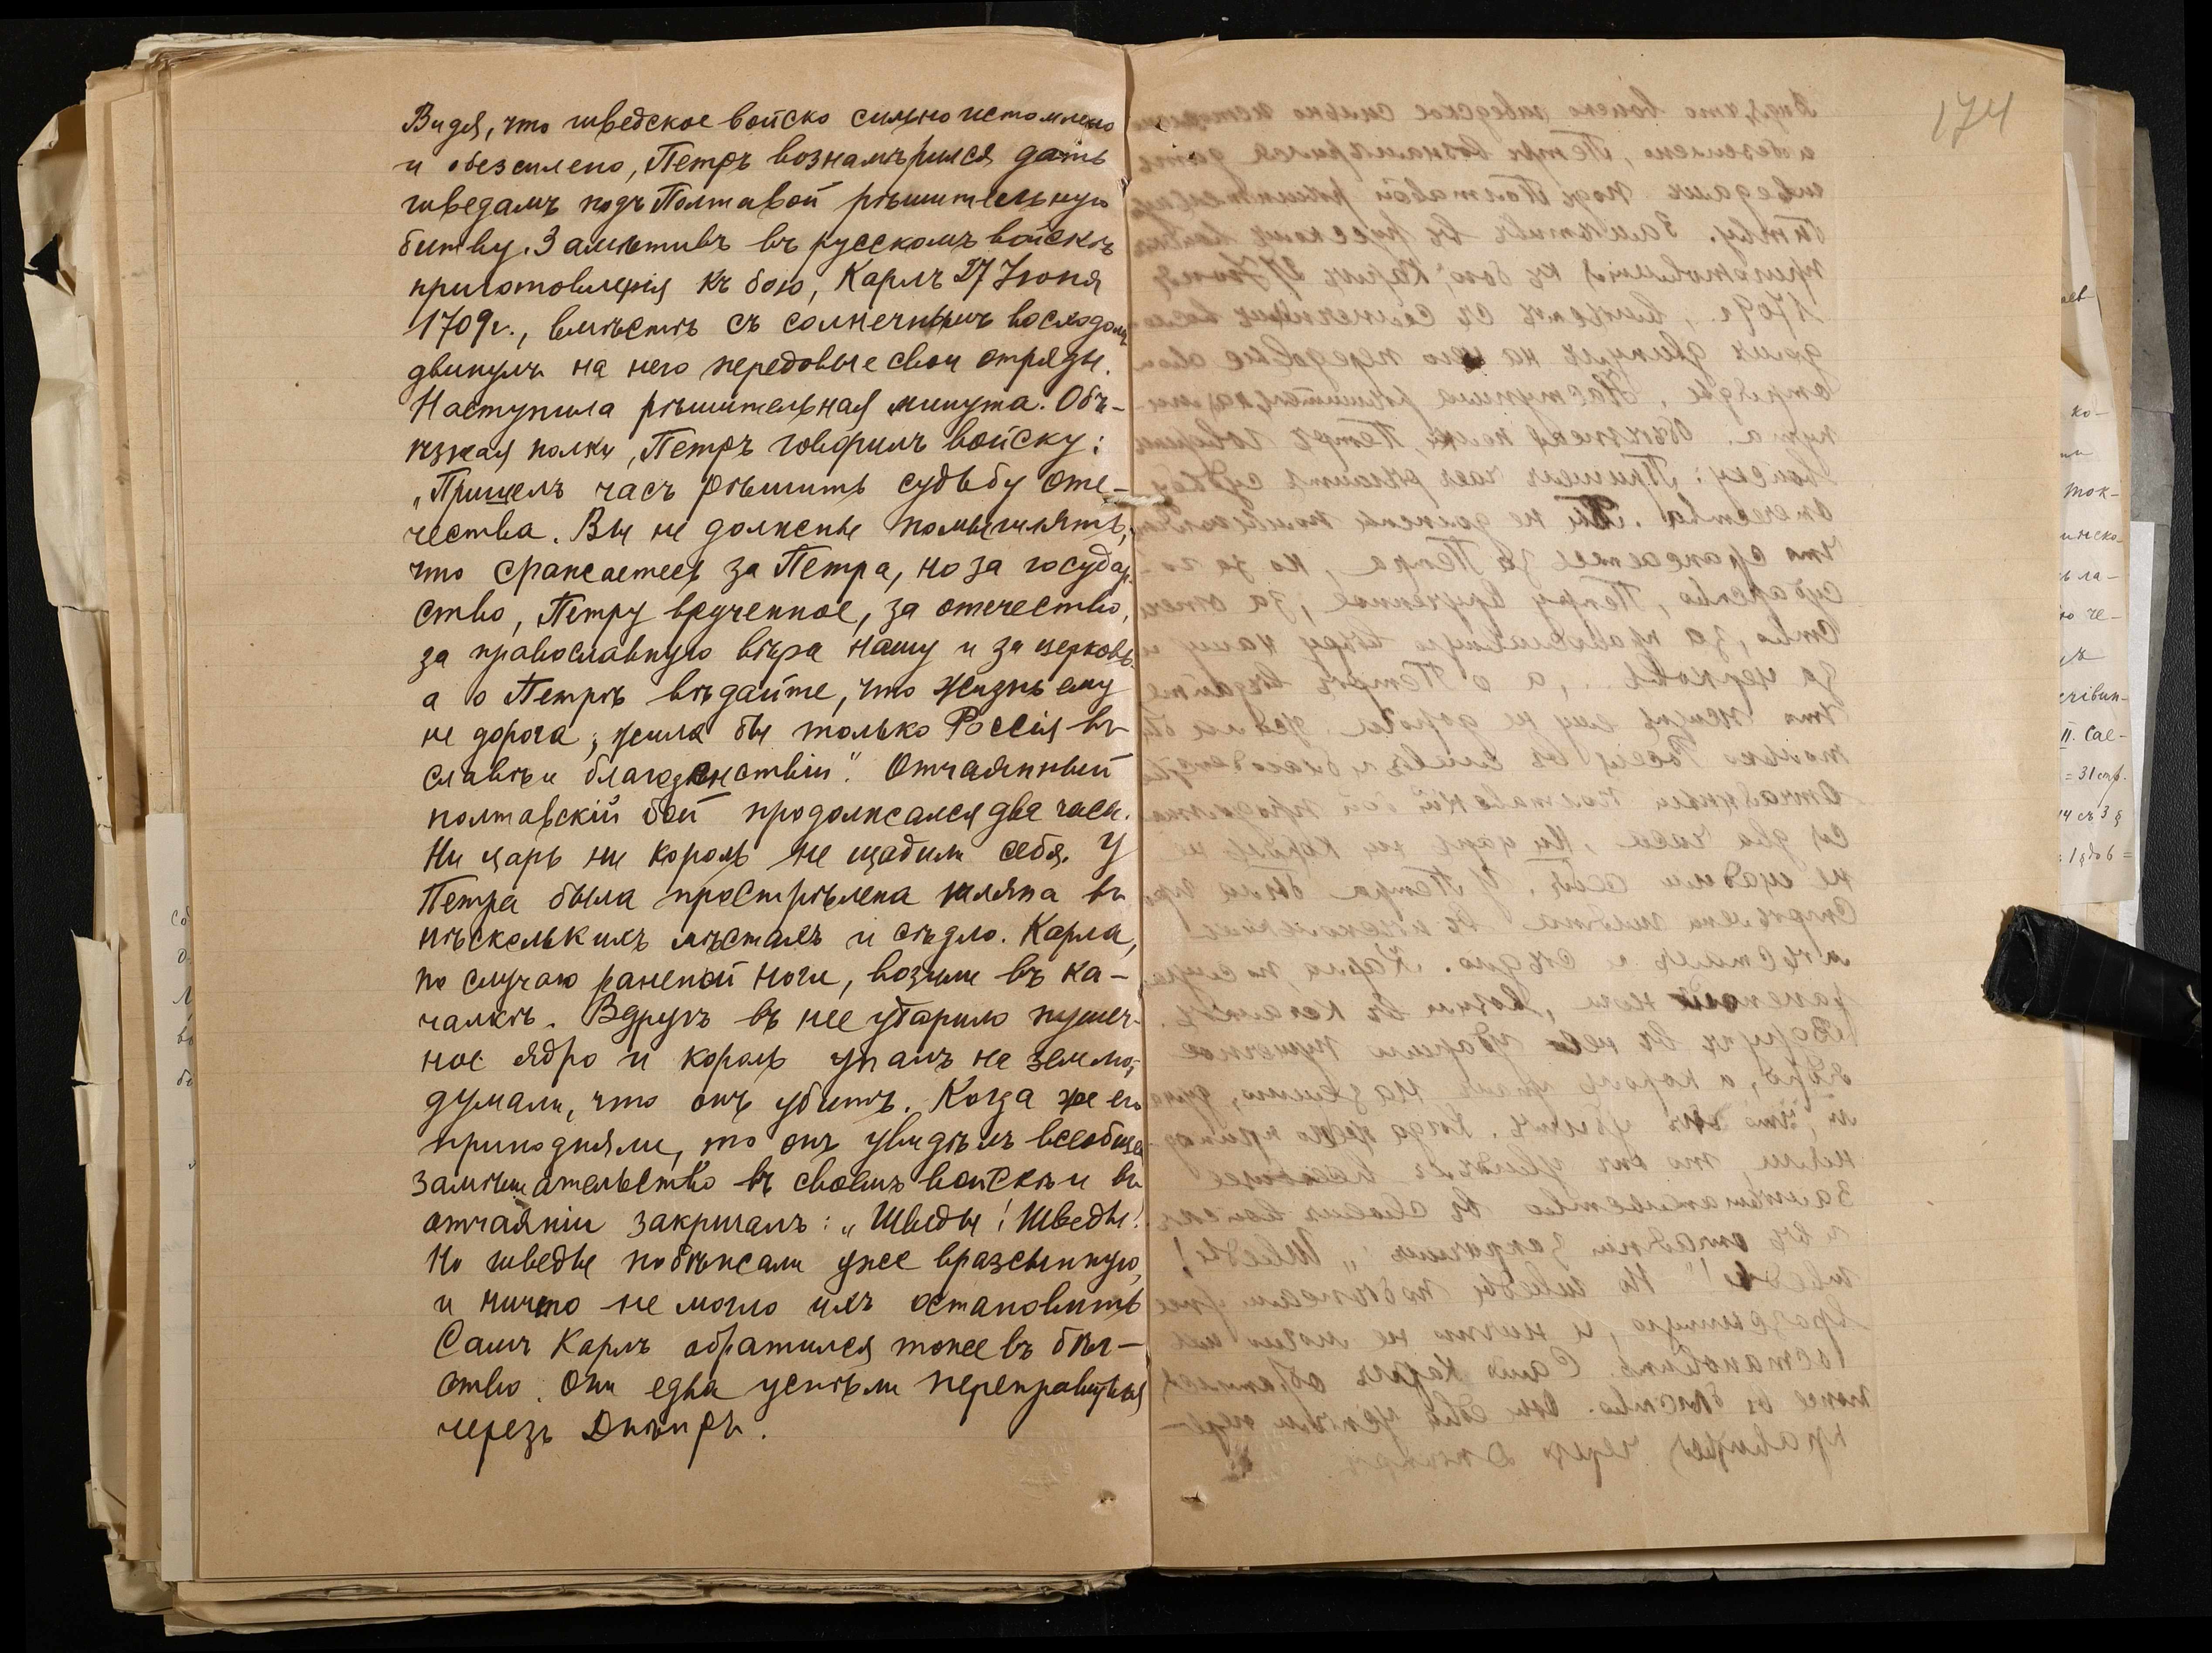 Видя, что шведское войско сильно истомлено
и обезсилено, Петръ вознамѣрился дать
шведамъ подъ Полтавой рѣшительную
битву. Замѣтивъ въ русскомъ войскѣ
приготовленія къ бою, Карлъ 27 Іюня
1709 г., вмѣстѣ съ солнечнымъ восходомъ
двинулъ на него передовые свои отряды.
Наступила рѣшительная минута. Объ-
ѣзжая полки, Петръ говорилъ войску:
„Пришелъ часъ рѣшить судьбу оте-
чества. Вы не должны помышлять,
что сражаетесь за Петра, но за государ-
ство, Петру врученное, за отечество,
за православную вѣра нашу и за церковь.
а о Петрѣ вѣдайте, что жизнь ему
не дорога; жила бы только Россія въ
славѣ и благоденствіи". Отчаянный
полтавскій бой продолжался два часа.
Ни царь ни король не щадили себя. У
Петра была прострѣлена шляпа въ
нѣсколькихъ мѣстахъ и сѣдло. Карла,
по случаю раненой ноги, возили въ ка-
чалкѣ. Вдругъ въ нее ударило пушеч-
ное ядро и король упалъ на землю;
думали, что онъ убитъ. Когда же его
приподняли, то онъ увидѣлъ всеобщее
замѣшательство въ своемъ войскѣ и въ
отчаяніи закричалъ: „Шведы! Шведы!
Но шведы побѣжали уже вразсыпную,
и ничто не могло ихъ остановить
Самъ Карлъ обратился тоже въ бѣг-
ство. Они едва успѣли переправиться
черезъ Днѣпръ.
174